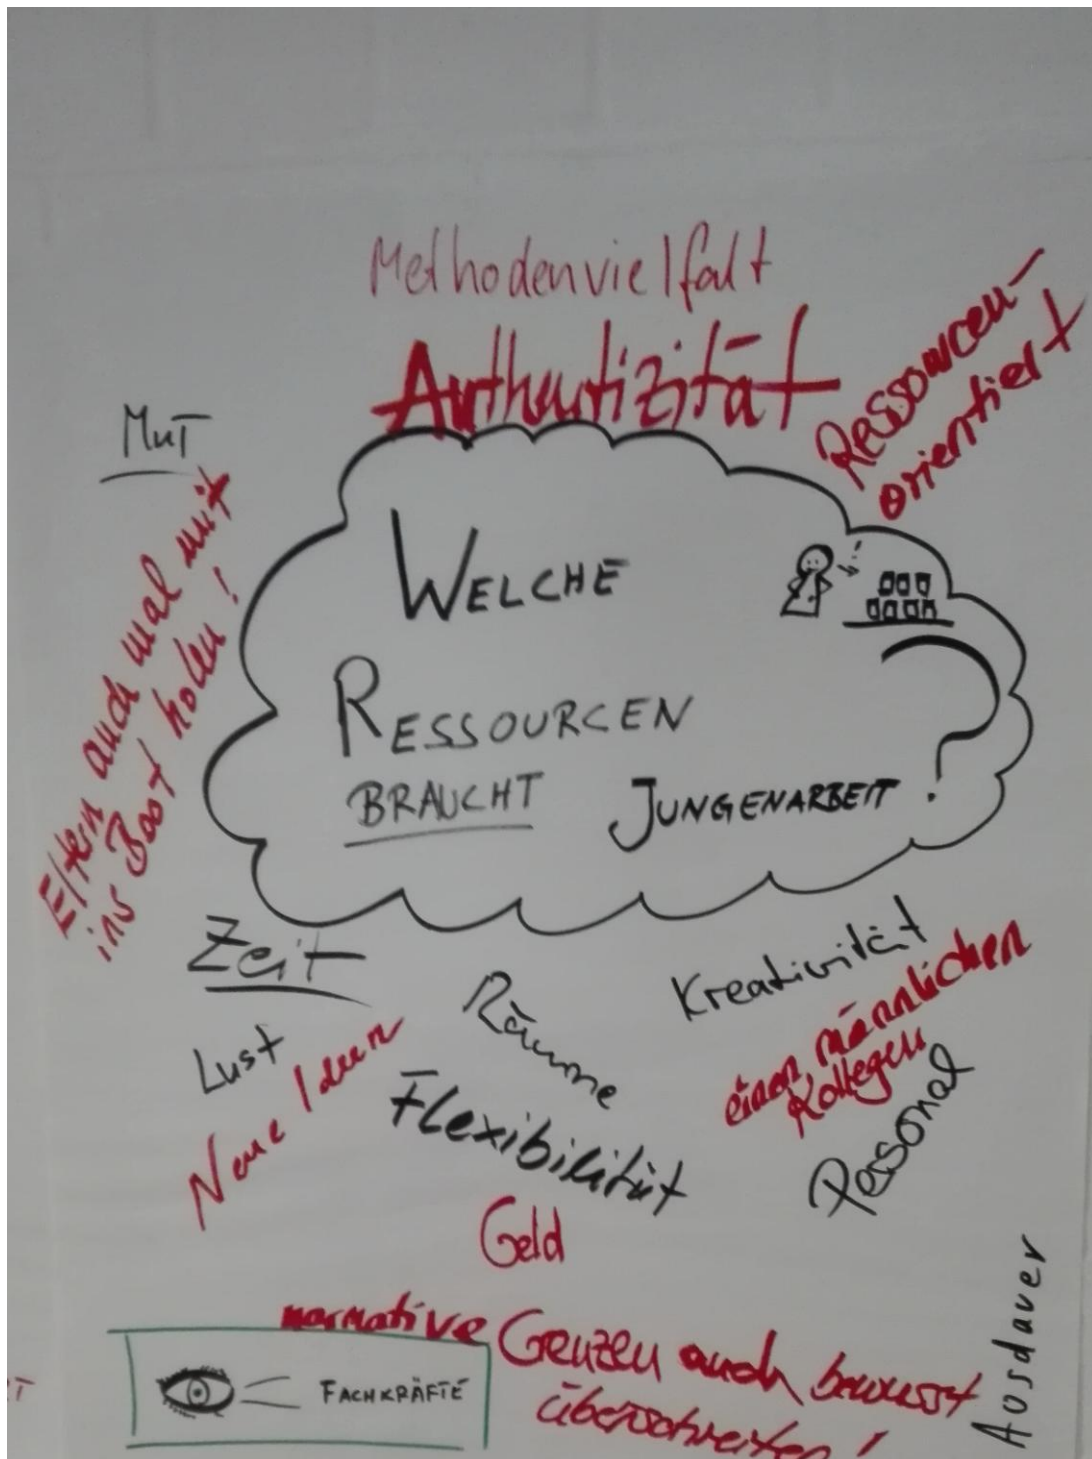 Methodenvielfalt
Authentizität
Ressourcen-
orientiert
Mut
Eltern auch mal mit
ins Boot holen!
WELCHE
RESSOURCEN
BRAUCHT JUNGENARBEIT ?
Zeit
Räume
Kreativität
einen männlichen
Kollegen
Lust
Neue Ideen
Flexibilität
Personal
Geld
Ausdauer
normative Grenzen auch bewusst
überschreiten!
FACHKRÄFTE